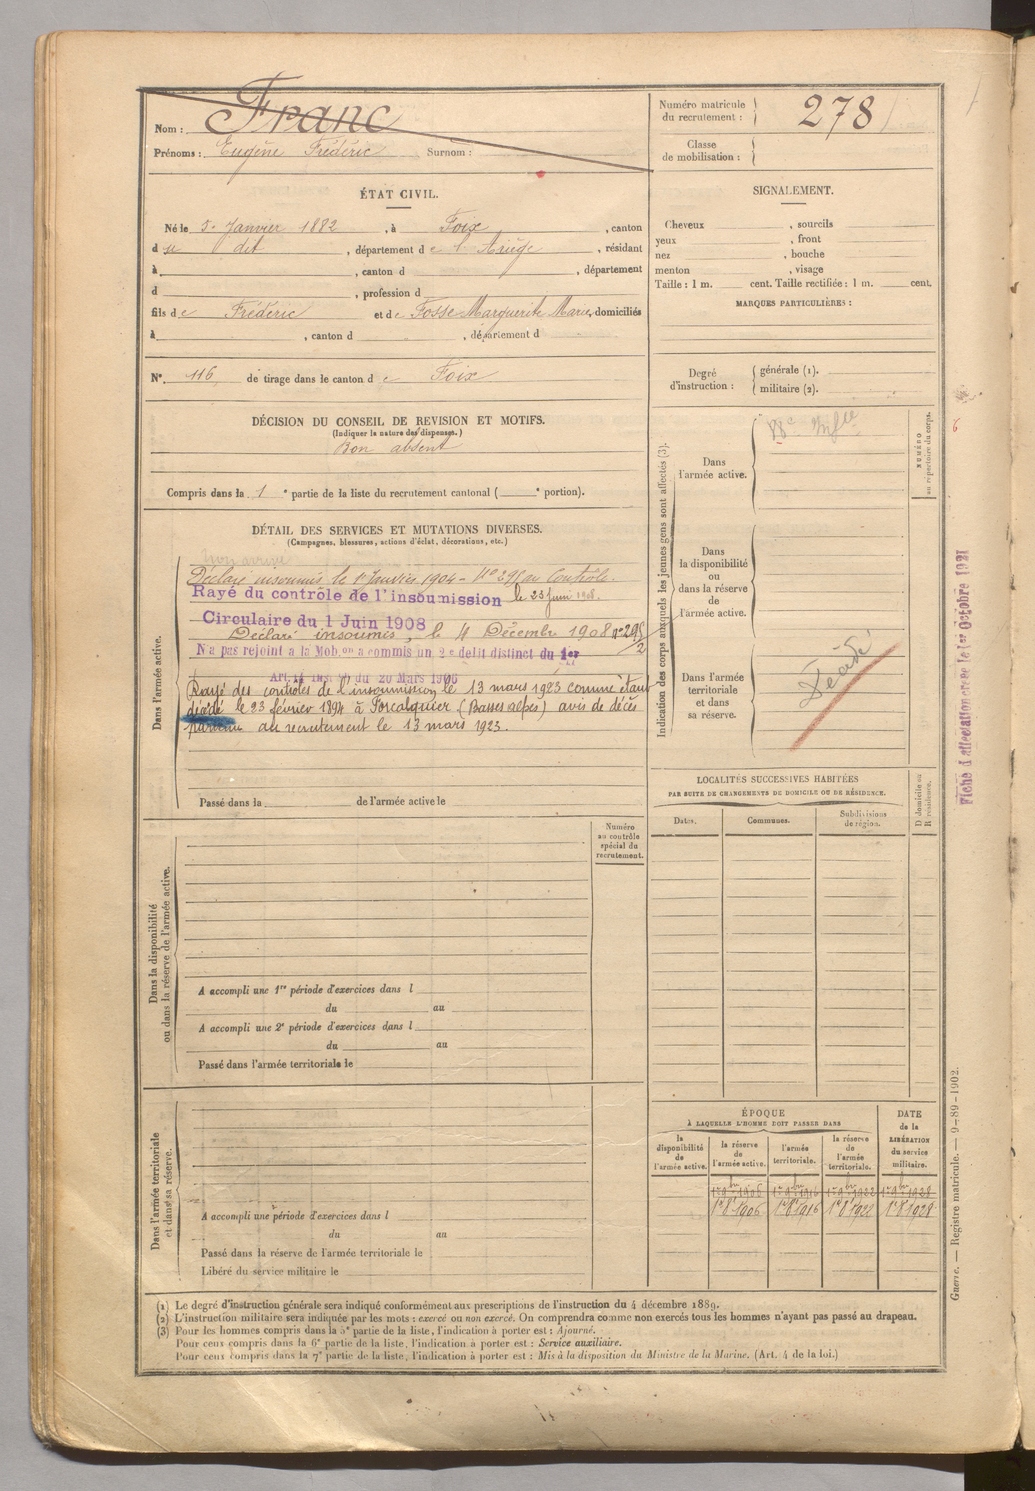 Nom : Franc
Prénoms : Eugène Frédéric Surnom :
Numéro matricule du recrutement : 278
Classe de mobilisation :
ÉTAT CIVIL.
Né le 5 Janvier 1882, à Foix, canton
du dit, département de l'Ariège, résidant
à , canton d , département
d , profession d
fils de Frédéric et de Fosse Marguerite Marie, domiciliés
à , canton d , département d
N° 116 de tirage dans le canton de Foix
DÉCISION DU CONSEIL DE REVISION ET MOTIFS.
(Indiquer la nature des dispenses.)
Bon absent
Compris dans la 1e partie de la liste du recrutement cantonal ( e portion).
DÉTAIL DES SERVICES ET MUTATIONS DIVERSES.
(Campagnes, blessures, actions d'éclat, décorations, etc.)
Dans l'armée active.
Non arrivé
Déclaré insoumis le 1er Janvier 1904 - No 295 au Contrôle.
Rayé du contrôle de l'insoumission le 23 Juin 1908.
Circulaire du 1 Juin 1908
Déclaré insoumis, le 4 Décembre 1908 no 295/2
N'a pas rejoint à la Mob.on a commis un 2e délit distinct du 1er
du 20 Mars 1906
Rayé des contrôles de l'insoumission le 13 mars 1923 comme étant
décédé le 23 février 1894 à Forcalquier (Basses alpes) avis de décès
parvenu au recrutement le 13 mars 1923.
Passé dans la de l'armée active le
Dans la disponibilité ou dans la réserve de l'armée active.
Numéro au contrôle spécial du recrutement.
A accompli une 1re période d'exercices dans l
du au
A accompli une 2e période d'exercices dans l
du au
Passé dans l'armée territoriale le
Dans l'armée territoriale et dans sa réserve.
A accompli une période d'exercices dans l
du au
Passé dans la réserve de l'armée territoriale le
Libéré du service militaire le
SIGNALEMENT.
Cheveux , sourcils
yeux , front
nez , bouche
menton , visage
Taille : 1 m. cent. Taille rectifiée : 1 m. cent.
MARQUES PARTICULIÈRES :
Degré d'instruction : générale (1).
militaire (2).
Indication des corps auxquels les jeunes gens sont affectés (3).
NUMÉRO au répertoire du corps.
Dans l'armée active.
Dans la disponibilité ou dans la réserve de l'armée active.
Dans l'armée territoriale et dans sa réserve.
Décédé
LOCALITÉS SUCCESSIVES HABITÉES
PAR SUITE DE CHANGEMENTS DE DOMICILE OU DE RÉSIDENCE.
Dates. Communes. Subdivisions de région. D domicile ou R résidence.
ÉPOQUE
À LAQUELLE L'HOMME DOIT PASSER DANS
la disponibilité de l'armée active.
la réserve de l'armée active.
l'armée territoriale.
la réserve de l'armée territoriale.
DATE de la LIBÉRATION du service militaire.
1er 9bre 1906 1er 9bre 1916 1er 9bre 1922 1er 9bre 1928
1er 8e 1906 1er 8e 1916 1er 8e 1922 1er 8e 1928
Fiche d'affectation créée le 1er Octobre 1921
Guerre. — Registre matricule. — 9-89-1902.
(1) Le degré d'instruction générale sera indiqué conformément aux prescriptions de l'instruction du 4 décembre 1889.
(2) L'instruction militaire sera indiquée par les mots : exercé ou non exercé. On comprendra comme non exercés tous les hommes n'ayant pas passé au drapeau.
(3) Pour les hommes compris dans la 5e partie de la liste, l'indication à porter est : Ajourné.
Pour ceux compris dans la 6e partie de la liste, l'indication à porter est : Service auxiliaire.
Pour ceux compris dans la 7e partie de la liste, l'indication à porter est : Mis à la disposition du Ministre de la Marine. (Art. 4 de la loi.)